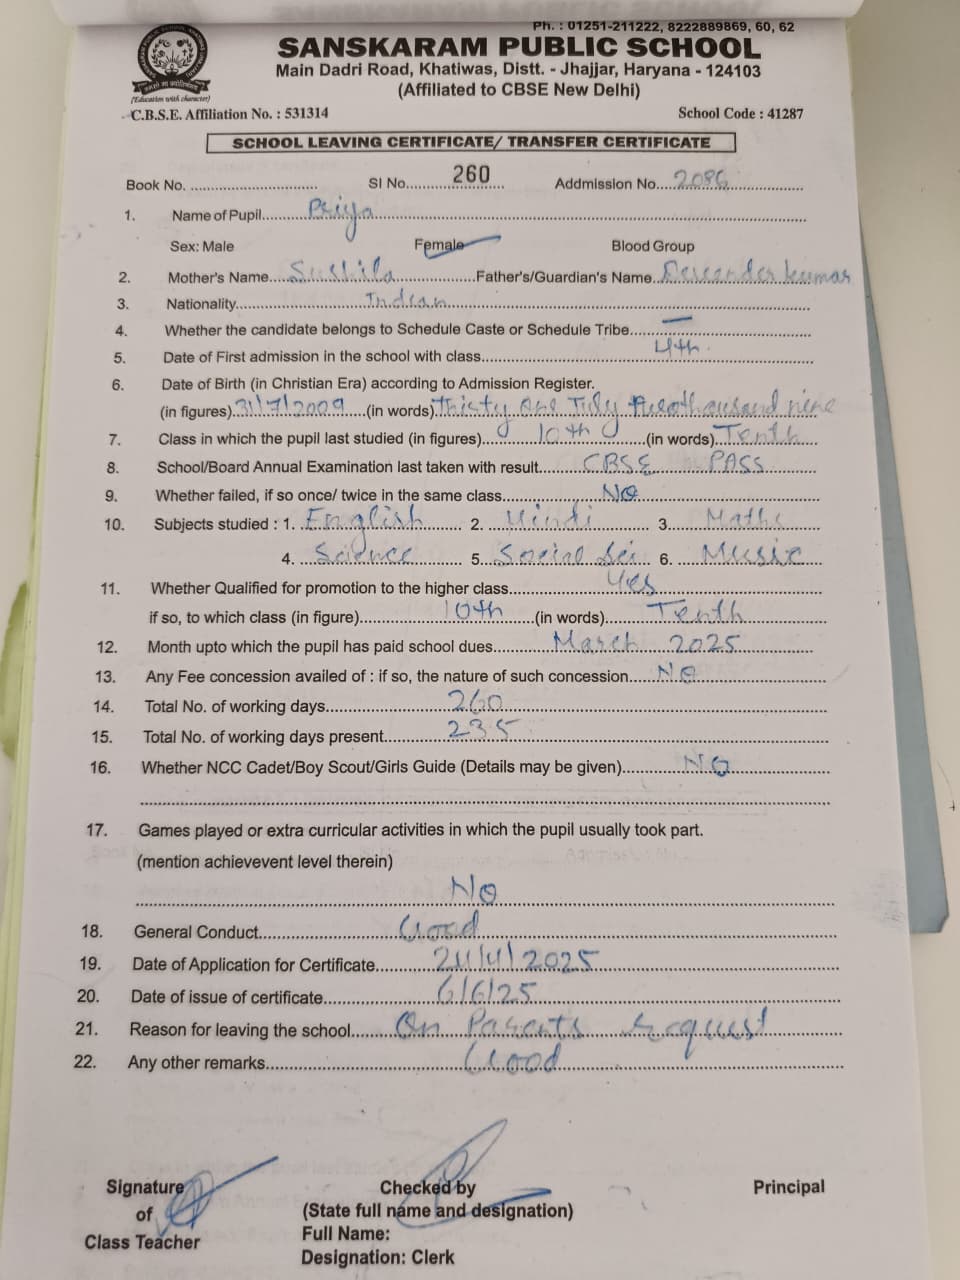 Ph. : 01251-211222, 8222889869, 60, 62
SANSKARAM PUBLIC SCHOOL
Main Dadri Road, Khatiwas, Distt. - Jhajjar, Haryana - 124103
(Affiliated to CBSE New Delhi)
(Education with character)
C.B.S.E. Affiliation No. : 531314 School Code : 41287
SCHOOL LEAVING CERTIFICATE/ TRANSFER CERTIFICATE
Book No. SI No. 260 Addmission No. 2086
1. Name of Pupil Priya
Sex: Male Female Blood Group
2. Mother's Name Sushila Father's/Guardian's Name kumar
3. Nationality Indian
4. Whether the candidate belongs to Schedule Caste or Schedule Tribe —
5. Date of First admission in the school with class 4th
6. Date of Birth (in Christian Era) according to Admission Register.
(in figures) 31/7/2009 (in words) Thirty One July Twothousand nine
7. Class in which the pupil last studied (in figures) 10th (in words) Tenth
8. School/Board Annual Examination last taken with result CBSE PASS
9. Whether failed, if so once/ twice in the same class NO
10. Subjects studied : 1. English 2. Hindi 3. Maths
4. Science 5. Social Sci 6. Music
11. Whether Qualified for promotion to the higher class Yes
if so, to which class (in figure) 10th (in words) Tenth
12. Month upto which the pupil has paid school dues March 2025
13. Any Fee concession availed of : if so, the nature of such concession NO
14. Total No. of working days 260
15. Total No. of working days present 235
16. Whether NCC Cadet/Boy Scout/Girls Guide (Details may be given) NO
17. Games played or extra curricular activities in which the pupil usually took part.
(mention achievevent level therein)
NO
18. General Conduct Good
19. Date of Application for Certificate 21/4/2025
20. Date of issue of certificate 6/6/25
21. Reason for leaving the school On Parents request
22. Any other remarks Good
Signature Checked by Principal
of (State full name and designation)
Class Teacher Full Name:
Designation: Clerk